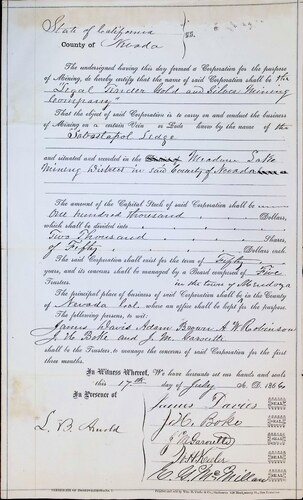 State of California
County of Nevada } SS.
The undersigned having this day formed a Corporation for the purpose
of Mining, do hereby certify that the name of said Corporation shall be the
"Legal Tender Gold and Silver Mining
Company"
That the object of said Corporation is to carry on and conduct the business
of Mining on a certain Vein or Lode known by the name of the
Ledge
and situated and recorded in the Meadow Lake
Mining District in said County of Nevada
The amount of the Capital Stock of said Corporation shall be
One hundred thousand Dollars,
which shall be divided into
Two Thousand Shares
of Fifty Dollars each.
The said Corporation shall exist for the term of Fifty
years, and its concerns shall be managed by a Board composed of Five
Trustees. in the town of
The principal place of business of said Corporation shall be in the County
of Nevada Cal. where an office shall be kept for the purpose.
The following persons, to wit:
James Davis Adam A W Robinson
J. H. Boke and J. M.
shall be the Trustees, to manage the concerns of said Corporation for the first
three months.
In Witness Whereof, We have hereunto set our hands and seals
this 17th day of July A.D. 1866
In Presence of
L. B. Arnold
James Davies SEAL
J. H. Boke SEAL
J M SEAL
SEAL
E. McMillan SEAL